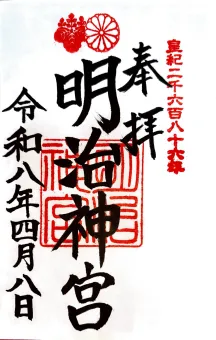 皇紀二千六百八十六年
奉拝
明治神宮
明治神宮
令和八年四月八日